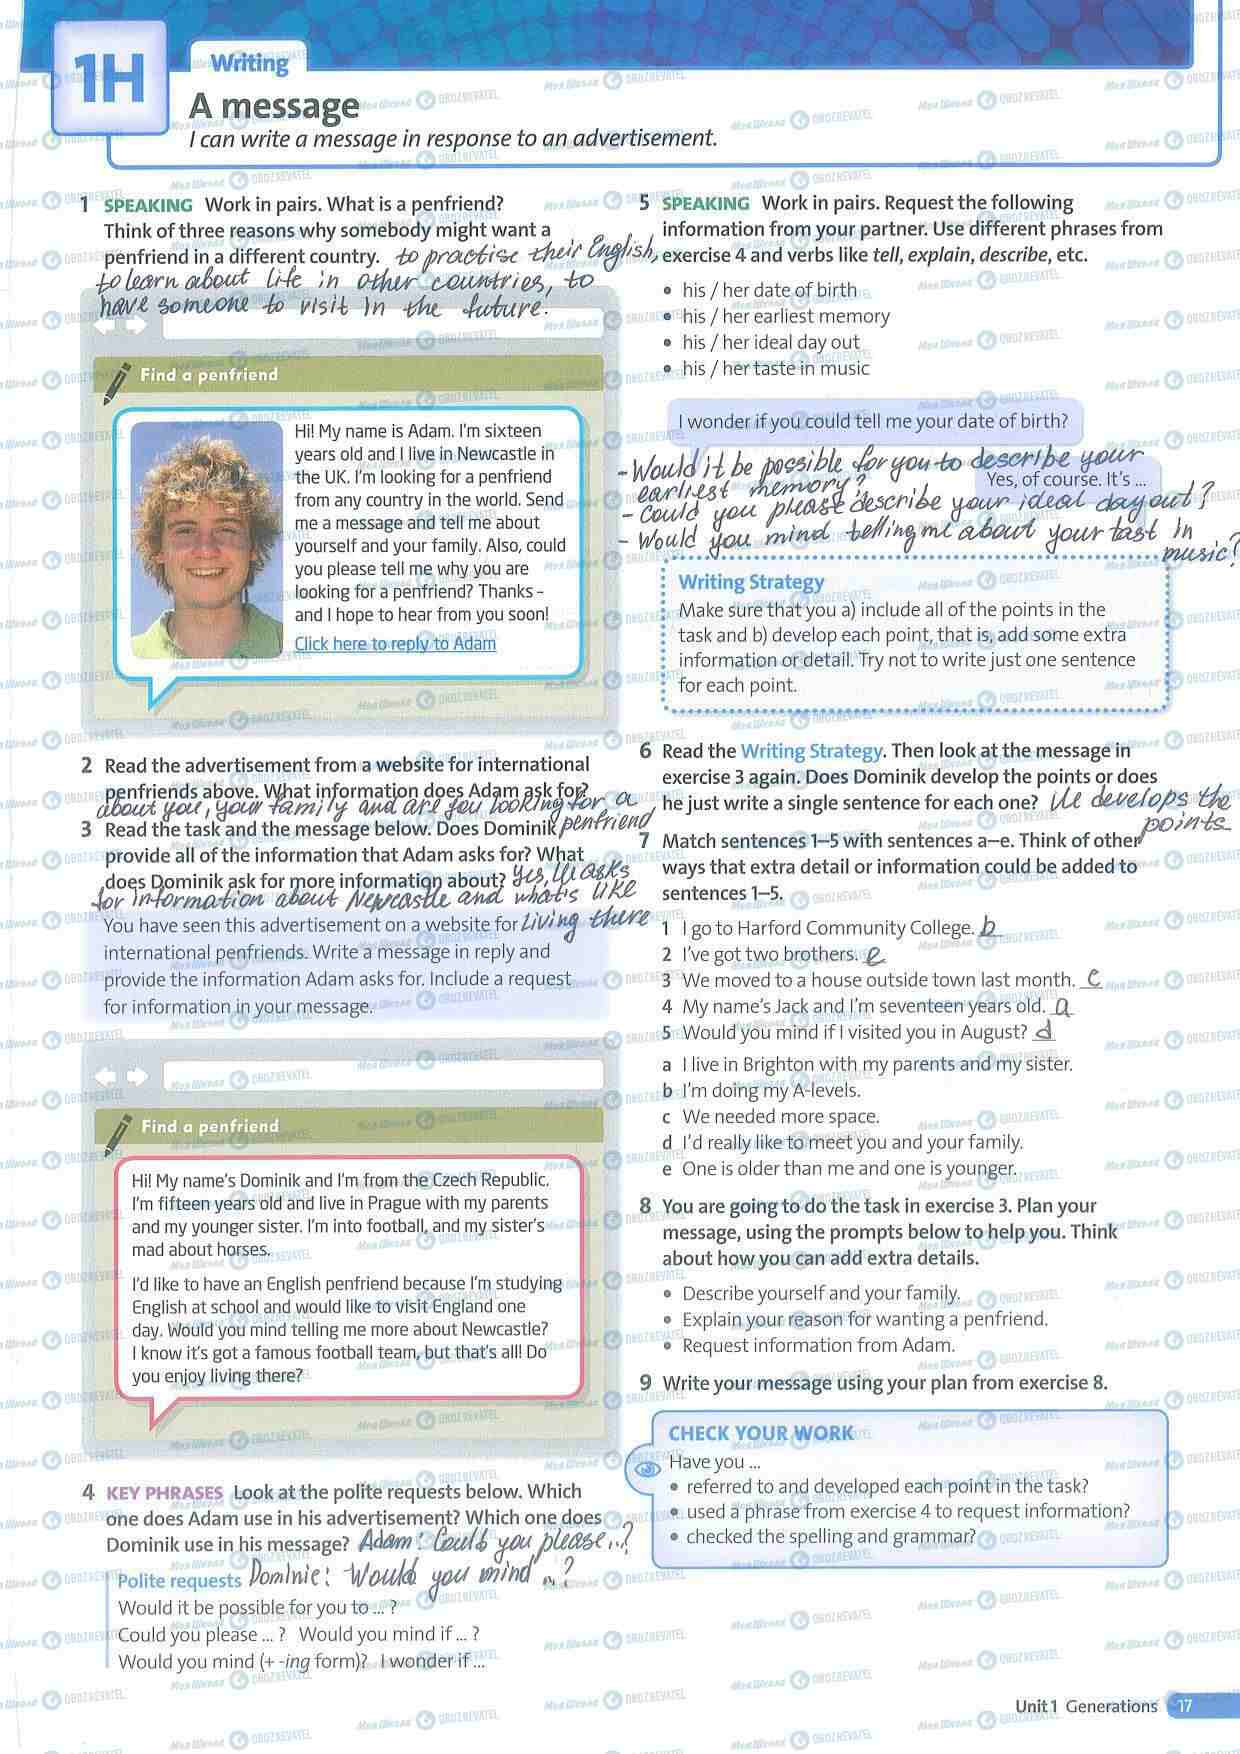 1H
Writing
A message
I can write a message in response to an advertisement.
1 SPEAKING Work in pairs. What is a penfriend?
Think of three reasons why somebody might want a
penfriend in a different country. to practise their English,
to learn about life in other countries, to
have someone to visit in the future.
Find a penfriend
Hi! My name is Adam. I'm sixteen
years old and I live in Newcastle in
the UK. I'm looking for a penfriend
from any country in the world. Send
me a message and tell me about
yourself and your family. Also, could
you please tell me why you are
looking for a penfriend? Thanks –
and I hope to hear from you soon!
Click here to reply to Adam
2 Read the advertisement from a website for international
penfriends above. What information does Adam ask for?
about you, your family and are you looking for a
penfriend
3 Read the task and the message below. Does Dominik
provide all of the information that Adam asks for? What
does Dominik ask for more information about? Yes, He asks
for information about Newcastle and what's like
living there
You have seen this advertisement on a website for
international penfriends. Write a message in reply and
provide the information Adam asks for. Include a request
for information in your message.
Find a penfriend
Hi! My name's Dominik and I'm from the Czech Republic.
I'm fifteen years old and live in Prague with my parents
and my younger sister. I'm into football, and my sister's
mad about horses.
I'd like to have an English penfriend because I'm studying
English at school and would like to visit England one
day. Would you mind telling me more about Newcastle?
I know it's got a famous football team, but that's all! Do
you enjoy living there?
4 KEY PHRASES Look at the polite requests below. Which
one does Adam use in his advertisement? Which one does
Dominik use in his message? Adam: Could you please...?
Polite requests Dominic: Would you mind ...?
Would it be possible for you to ... ?
Could you please ... ? Would you mind if ... ?
Would you mind (+ -ing form)? I wonder if ...
5 SPEAKING Work in pairs. Request the following
information from your partner. Use different phrases from
exercise 4 and verbs like tell, explain, describe, etc.
• his / her date of birth
• his / her earliest memory
• his / her ideal day out
• his / her taste in music
I wonder if you could tell me your date of birth?
- Would it be possible for you to describe your
earliest memory?
Yes, of course. It's ...
- Could you please describe your ideal day out?
- Would you mind telling me about your tast in
music?
Writing Strategy
Make sure that you a) include all of the points in the
task and b) develop each point, that is, add some extra
information or detail. Try not to write just one sentence
for each point.
6 Read the Writing Strategy. Then look at the message in
exercise 3 again. Does Dominik develop the points or does
he just write a single sentence for each one? He develops the
points
7 Match sentences 1–5 with sentences a–e. Think of other
ways that extra detail or information could be added to
sentences 1–5.
1 I go to Harford Community College. b
2 I've got two brothers. e
3 We moved to a house outside town last month. c
4 My name's Jack and I'm seventeen years old. a
5 Would you mind if I visited you in August? d
a I live in Brighton with my parents and my sister.
b I'm doing my A-levels.
c We needed more space.
d I'd really like to meet you and your family.
e One is older than me and one is younger.
8 You are going to do the task in exercise 3. Plan your
message, using the prompts below to help you. Think
about how you can add extra details.
• Describe yourself and your family.
• Explain your reason for wanting a penfriend.
• Request information from Adam.
9 Write your message using your plan from exercise 8.
CHECK YOUR WORK
Have you ...
• referred to and developed each point in the task?
• used a phrase from exercise 4 to request information?
• checked the spelling and grammar?
Unit 1 Generations 17